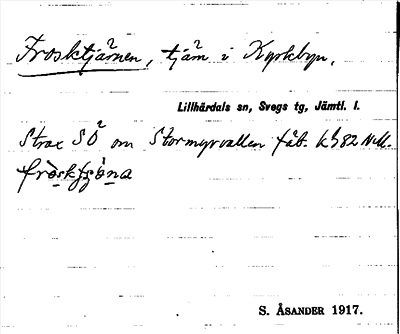 Frosktjärnen, tjärn i Kyrkbyn.
Lillhärdals sn, Svegs tg, Jämtl. l.
Strax SÖ om Stormyrvallen fäb.
S. ÅSANDER 1917.